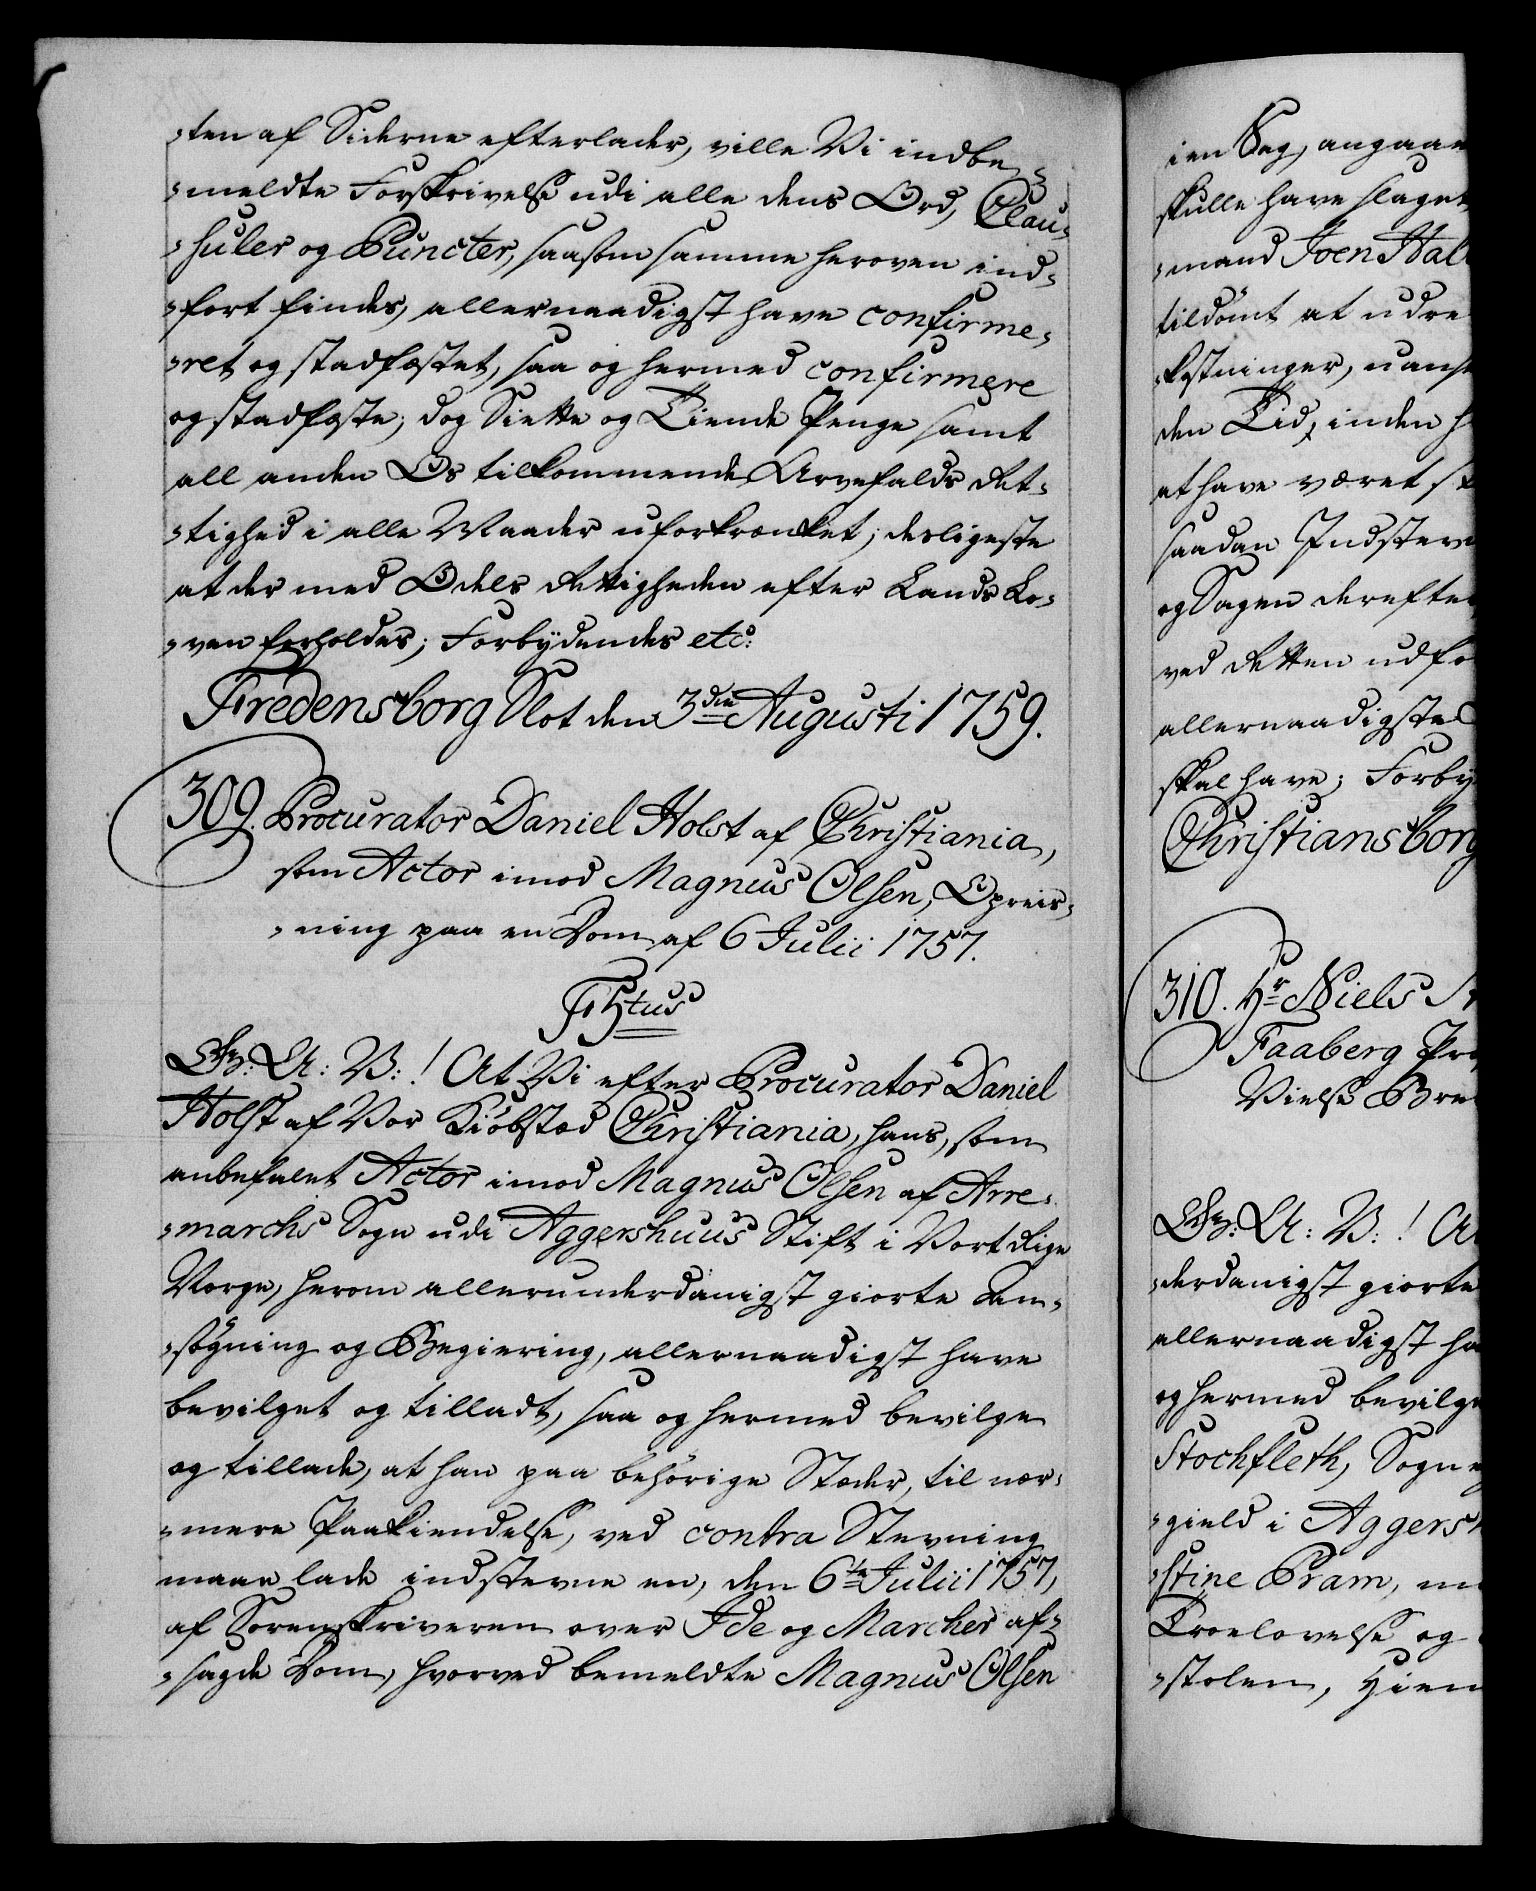 -ten af Siderne efterlader, ville Vi indbe-
-meldte Forskrivelse udi alle dens Ord, Clau-
-suler og Puncter, saasom samme heroven ind-
-fort findes, allernaadigst have confirme-
-ret og stadfæstet, saa og hermed confirmere
og stadfæste; dog Siette og Tiende Penge samt
all anden Os tilkommende Arvefalds Ret-
-tighed i alle Maader uforkrænket; desligeste
at der med Odels Rettigheden efter Lands Lo-
-ven forholdes; Forbydendes etc:
Fredensborg Slot den 3die Augusti 1759.
309. Procurator Daniel Holst af Christiania,
som Actor imod Magnus Olsen, Opreis-
-ning paa en Dom af 6 Julii 1757.
F5tus
Gr: A: V: ! At Vi efter Procurator Daniel
Holst af Vor Kiøbstæd Christiania, hans, som
anbefalet Actor imod Magnus Olsen af Arre-
-marchs Sogn udi Aggershuus Stift i Vort Rige
Norge, herom allerunderdanigst giorte An-
-søgning og Begiering, allernaadigst have
bevilget og tilladt, saa og hermed bevilge
og tillade, at han paa behörige Stæder, til nær-
-mere Paakiendelse, ved contra Stevning
maae lade indstevne en, den 6te Julii 1757,
af Sorenskriveren over Ide og Marcher af-
-sagde Dom, hvorved bemeldte Magnus Olsen
i en Sag, angaae
skulle have slaget
-mand Joen Hal
tildömt at udre
-kostninger, uanse
den Tid, inden h
at have været st
saadan Indstevn
og Sagen derefter
ved Retten udfø
allernaadigste
skal have; Forby
Christiansborg
310. Hr Niels St
Faaberg Pr
Vielse Bre
Gr: A: V: ! At
-derdanigst giorte
allernaadigst ha
og hermed bevilge
Stochfleth, Sogne
-gield i Aggersh
-stine Pram, m
Troelovelse og
-stolen, hiem